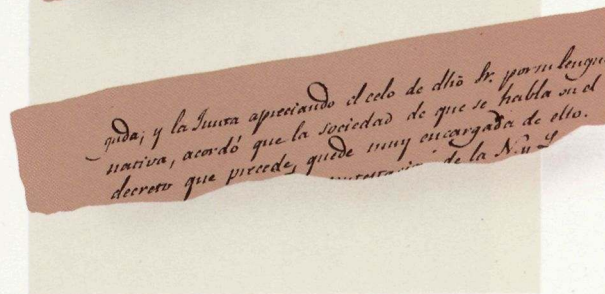 guda; y la Junta apreciando el celo de dho Sr. por su lengua
nativa, acordó que la sociedad de que se habla en el
decreto que precede, quede muy encargada de ello.
de la N.